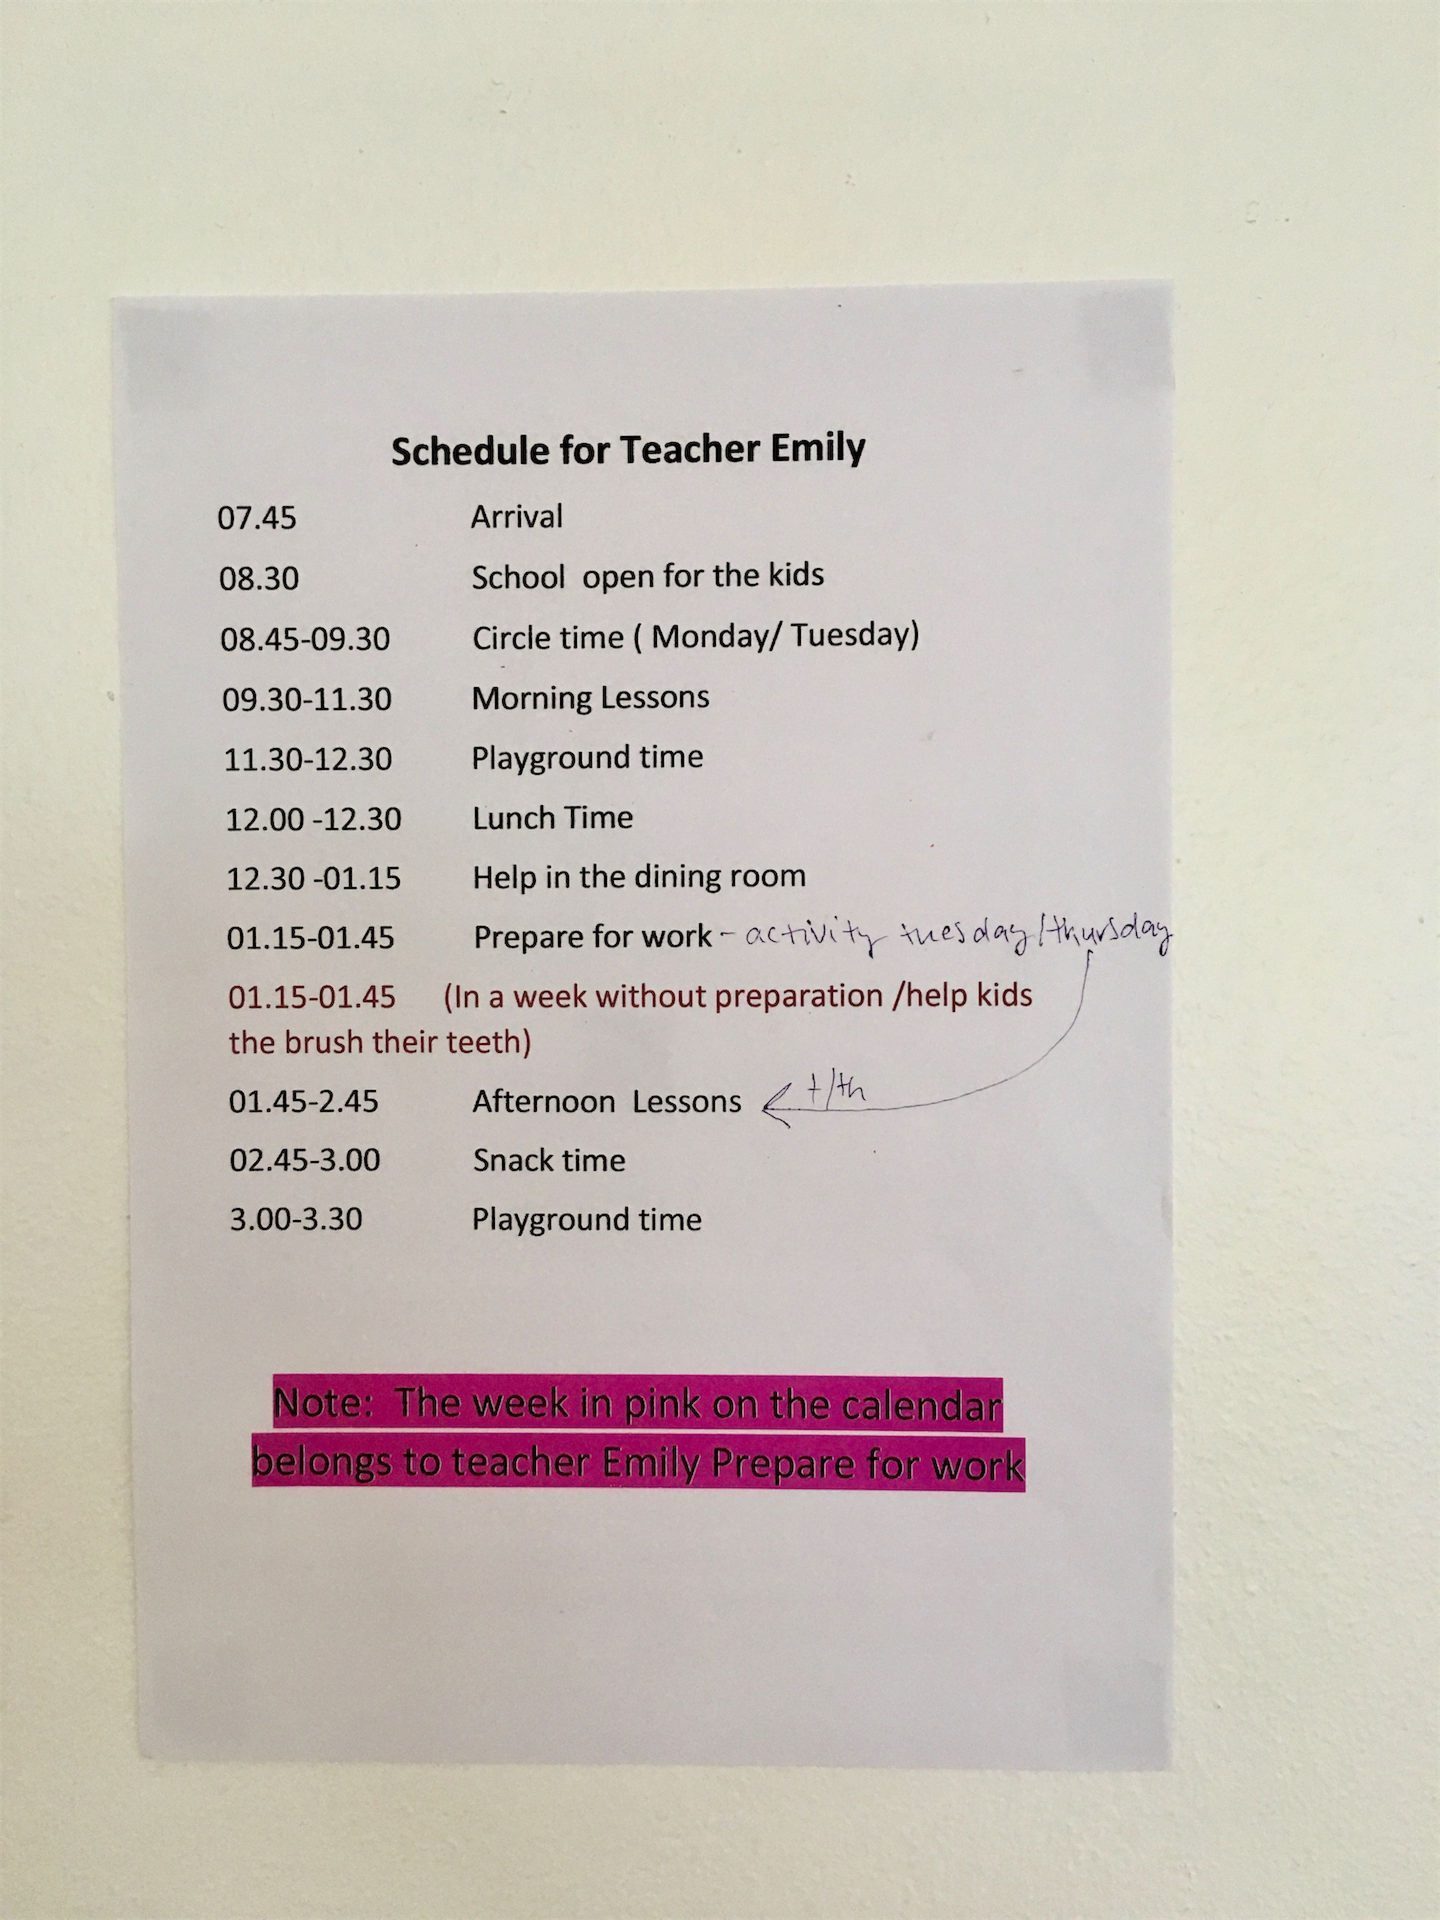 Schedule for Teacher Emily
07.45 Arrival
08.30 School open for the kids
08.45-09.30 Circle time ( Monday/ Tuesday)
09.30-11.30 Morning Lessons
11.30-12.30 Playground time
12.00 -12.30 Lunch Time
12.30 -01.15 Help in the dining room
01.15-01.45 Prepare for work - activity tuesday/thursday
01.15-01.45 (In a week without preparation /help kids
the brush their teeth)
01.45-2.45 Afternoon Lessons t/th
02.45-3.00 Snack time
3.00-3.30 Playground time
Note: The week in pink on the calendar
belongs to teacher Emily Prepare for work